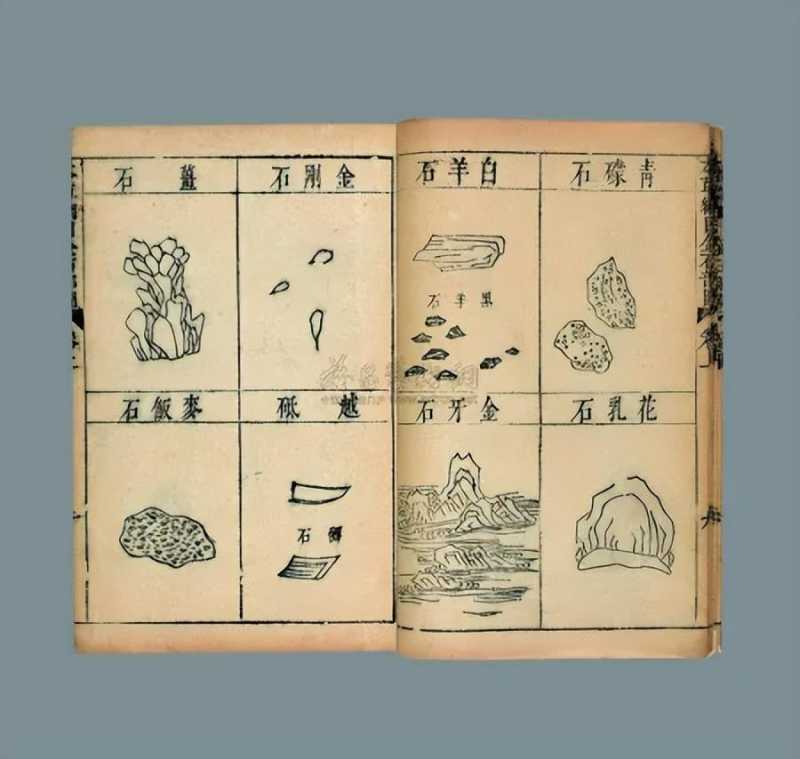 青礞石
白羊石
黑羊石
花乳石
金牙石
金剛石
薑石
越砥
礪石
麥飯石